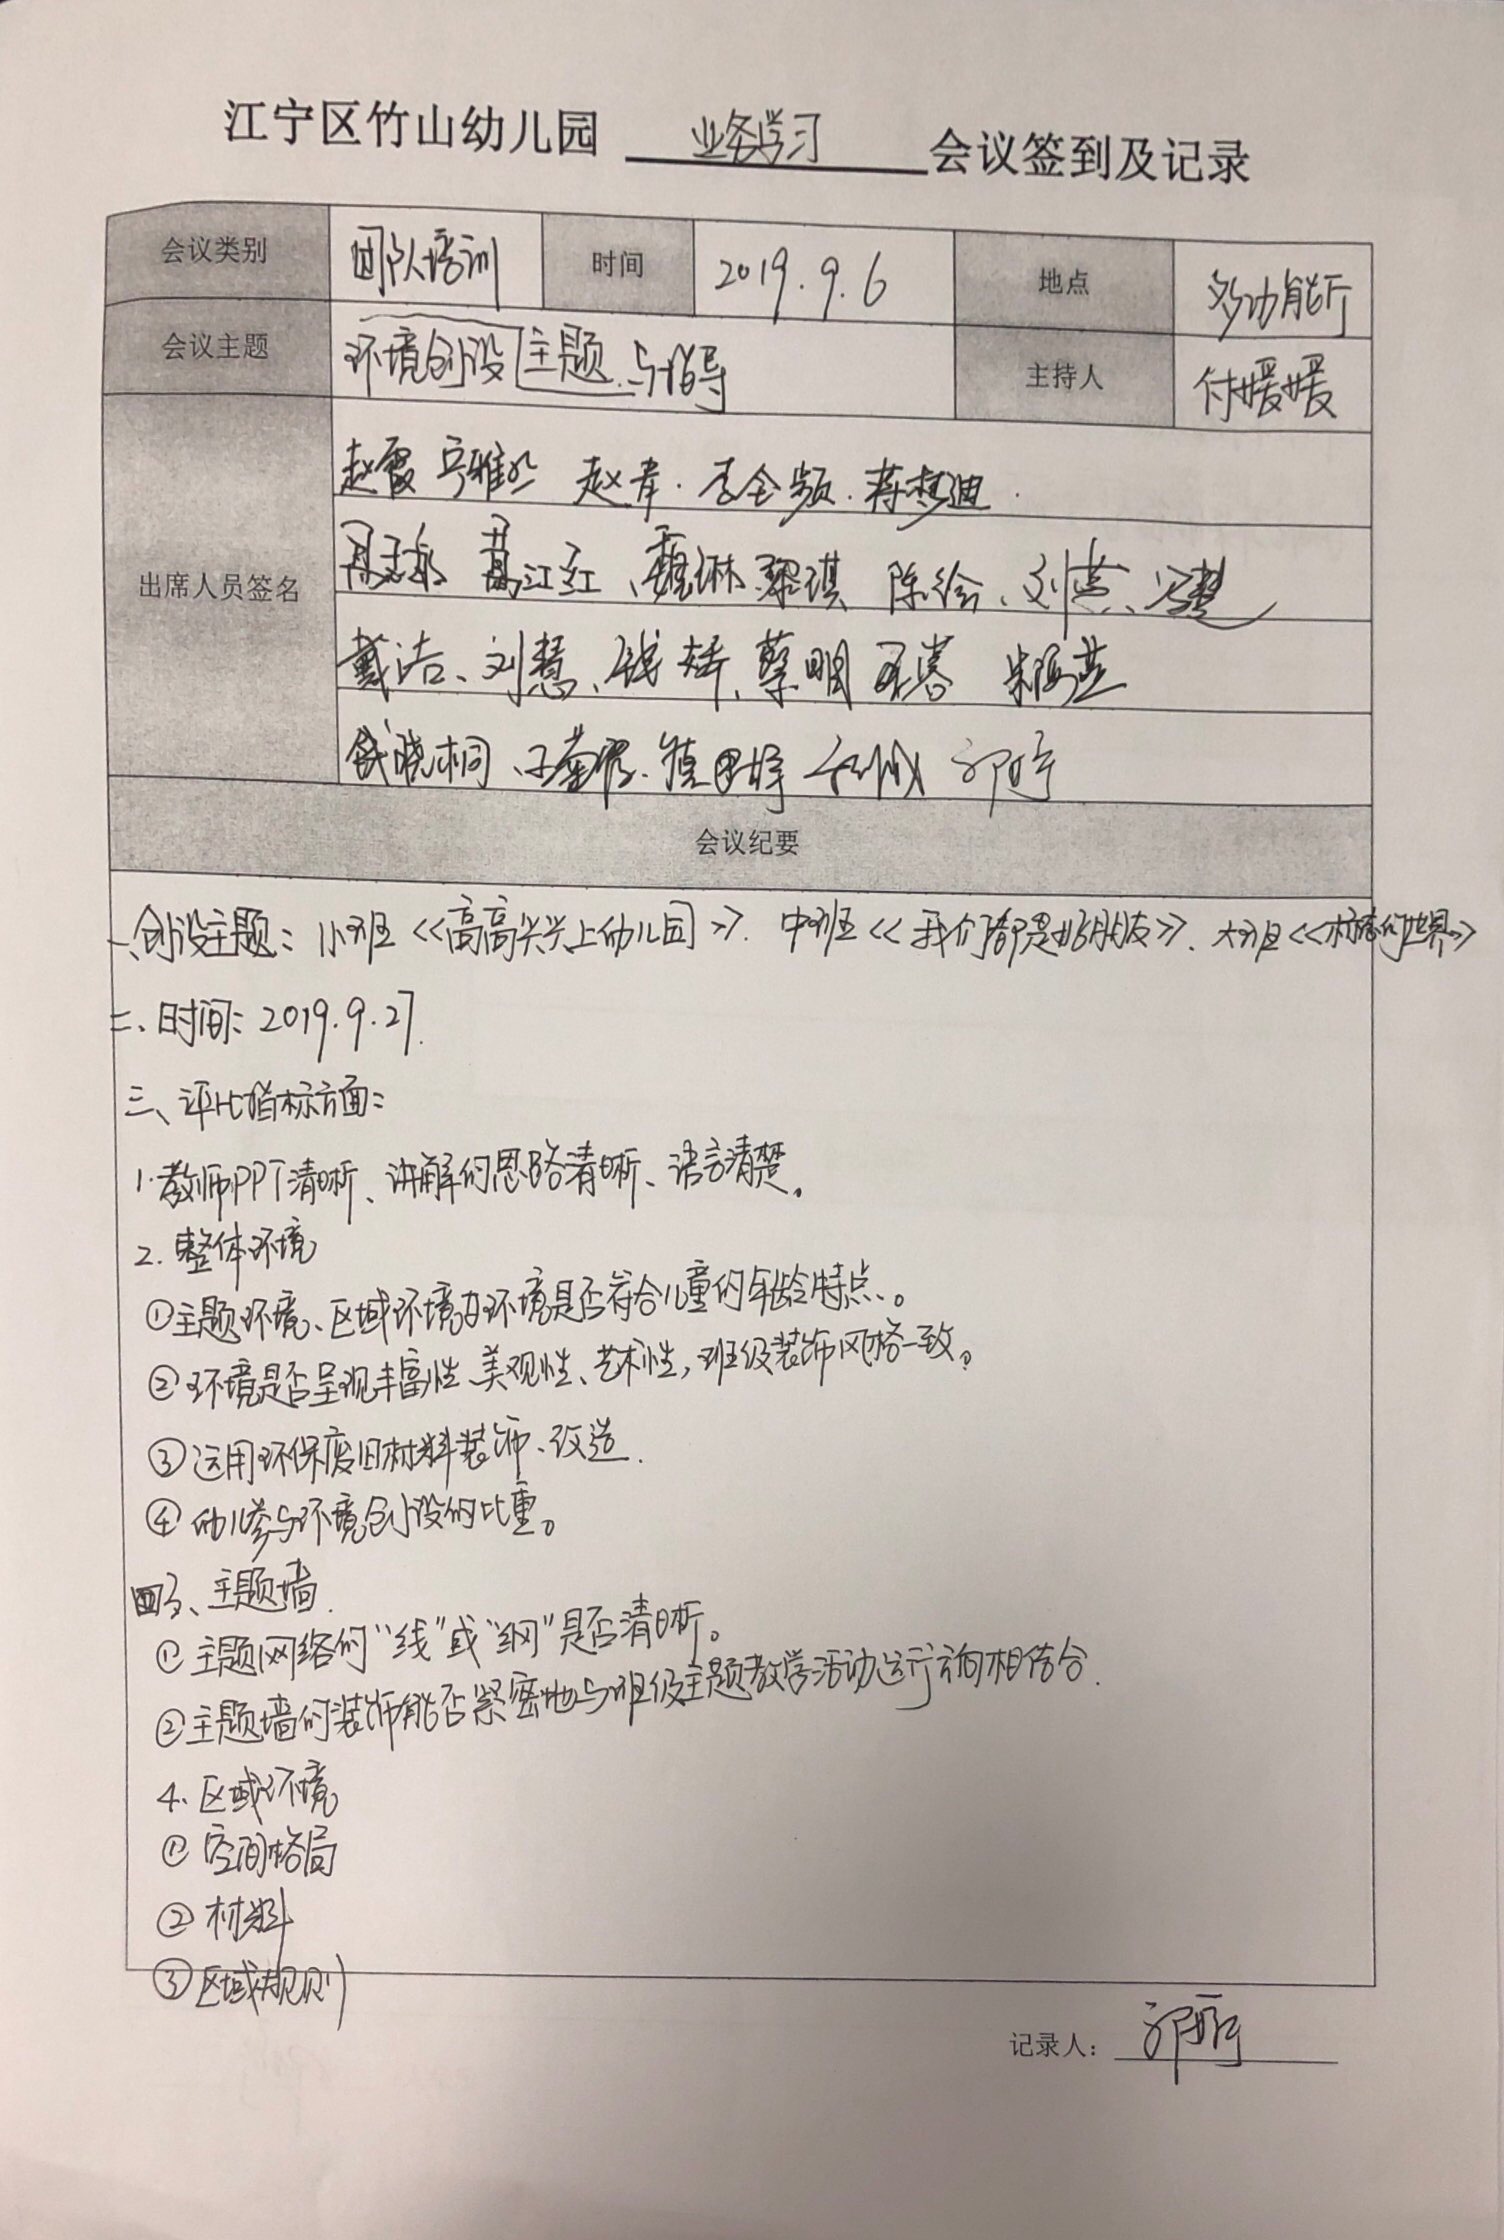 江宁区竹山幼儿园 业务学习 会议签到及记录
会议类别 团队培训 时间 2019.9.6 地点 多功能厅
会议主题 环境创设主题与指导 主持人 付媛媛
出席人员签名
赵霞 赵
葛江红、魏琳 黎琪 陈绘、刘燕、
戴洁、刘慧、钱婷、蔡明 朱海燕
钱晓桐
会议纪要
一、创设主题：小班《高高兴兴上幼儿园》. 中班《我们都是好朋友》. 大班《的世界》
二、时间：2019.9.27.
三、评比指标方面：
1.教师PPT清晰、讲解的思路清晰、语言清楚。
2.整体环境
①主题环境、区域环境为环境是否符合儿童的年龄特点、。
②环境是否呈现丰富性、美观性、艺术性，班级装饰风格一致。
③运用环保废旧材料装饰、改造.
④幼儿参与环境创设的比重。
四、主题墙.
①主题网络的“线”或“纲”是否清晰。
②主题墙的装饰能否紧密地与班级主题教学活动运行方向相结合.
4.区域环境
①空间格局
②材料
③区域规则
记录人：